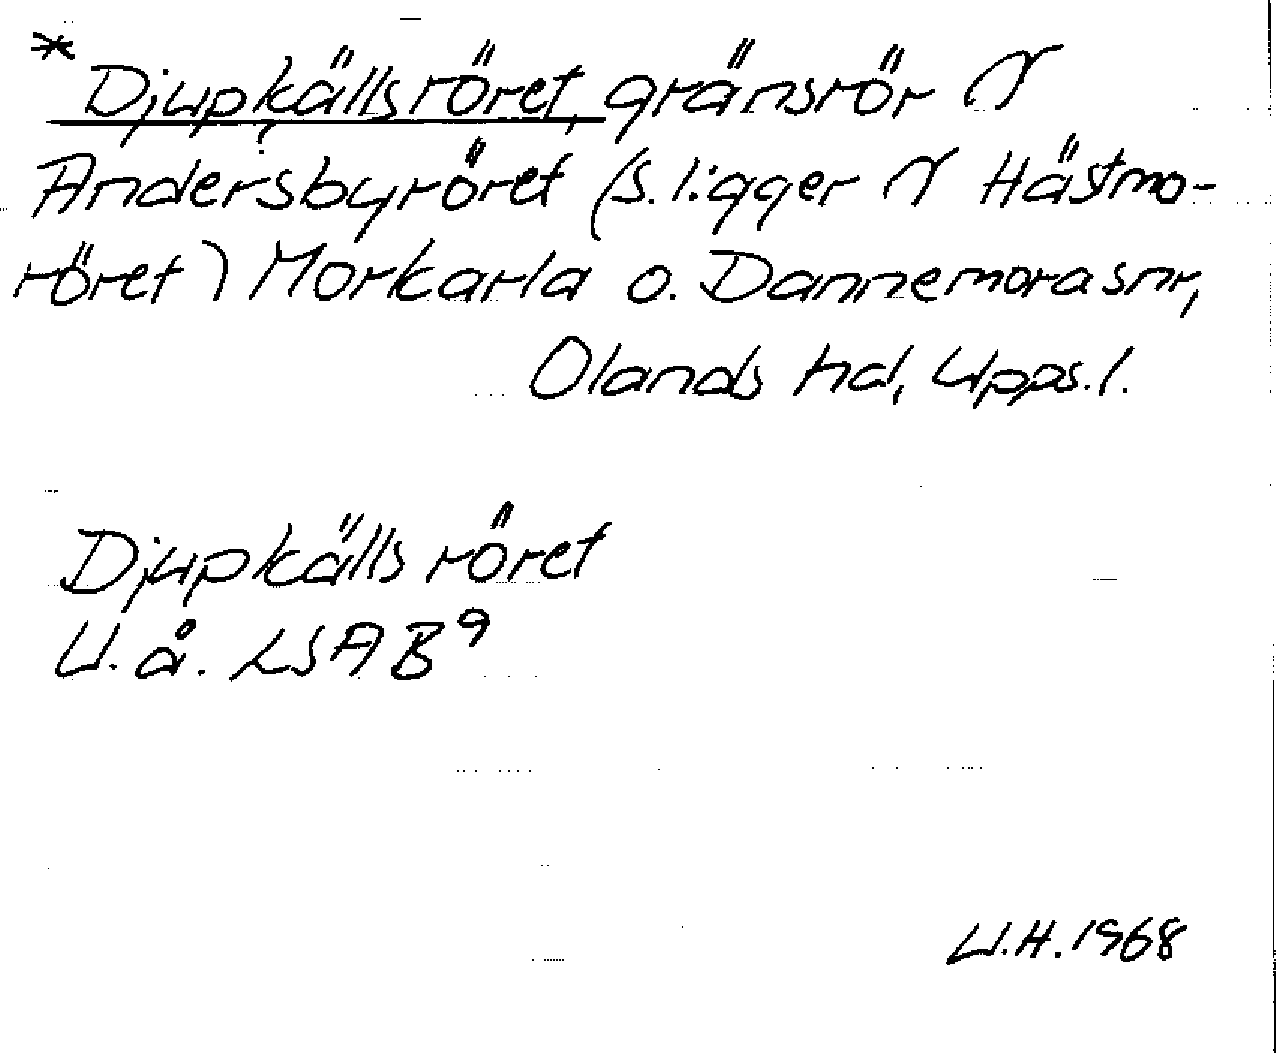 * Djupkällsröret, gränsrör N
Andersbyröret (s. ligger N Hästmo-
röret) Morkarla o. Dannemora snr,
Olands hd, Upps. l.
Djupkällsröret
U. å. LSA B⁹
U.H. 1968